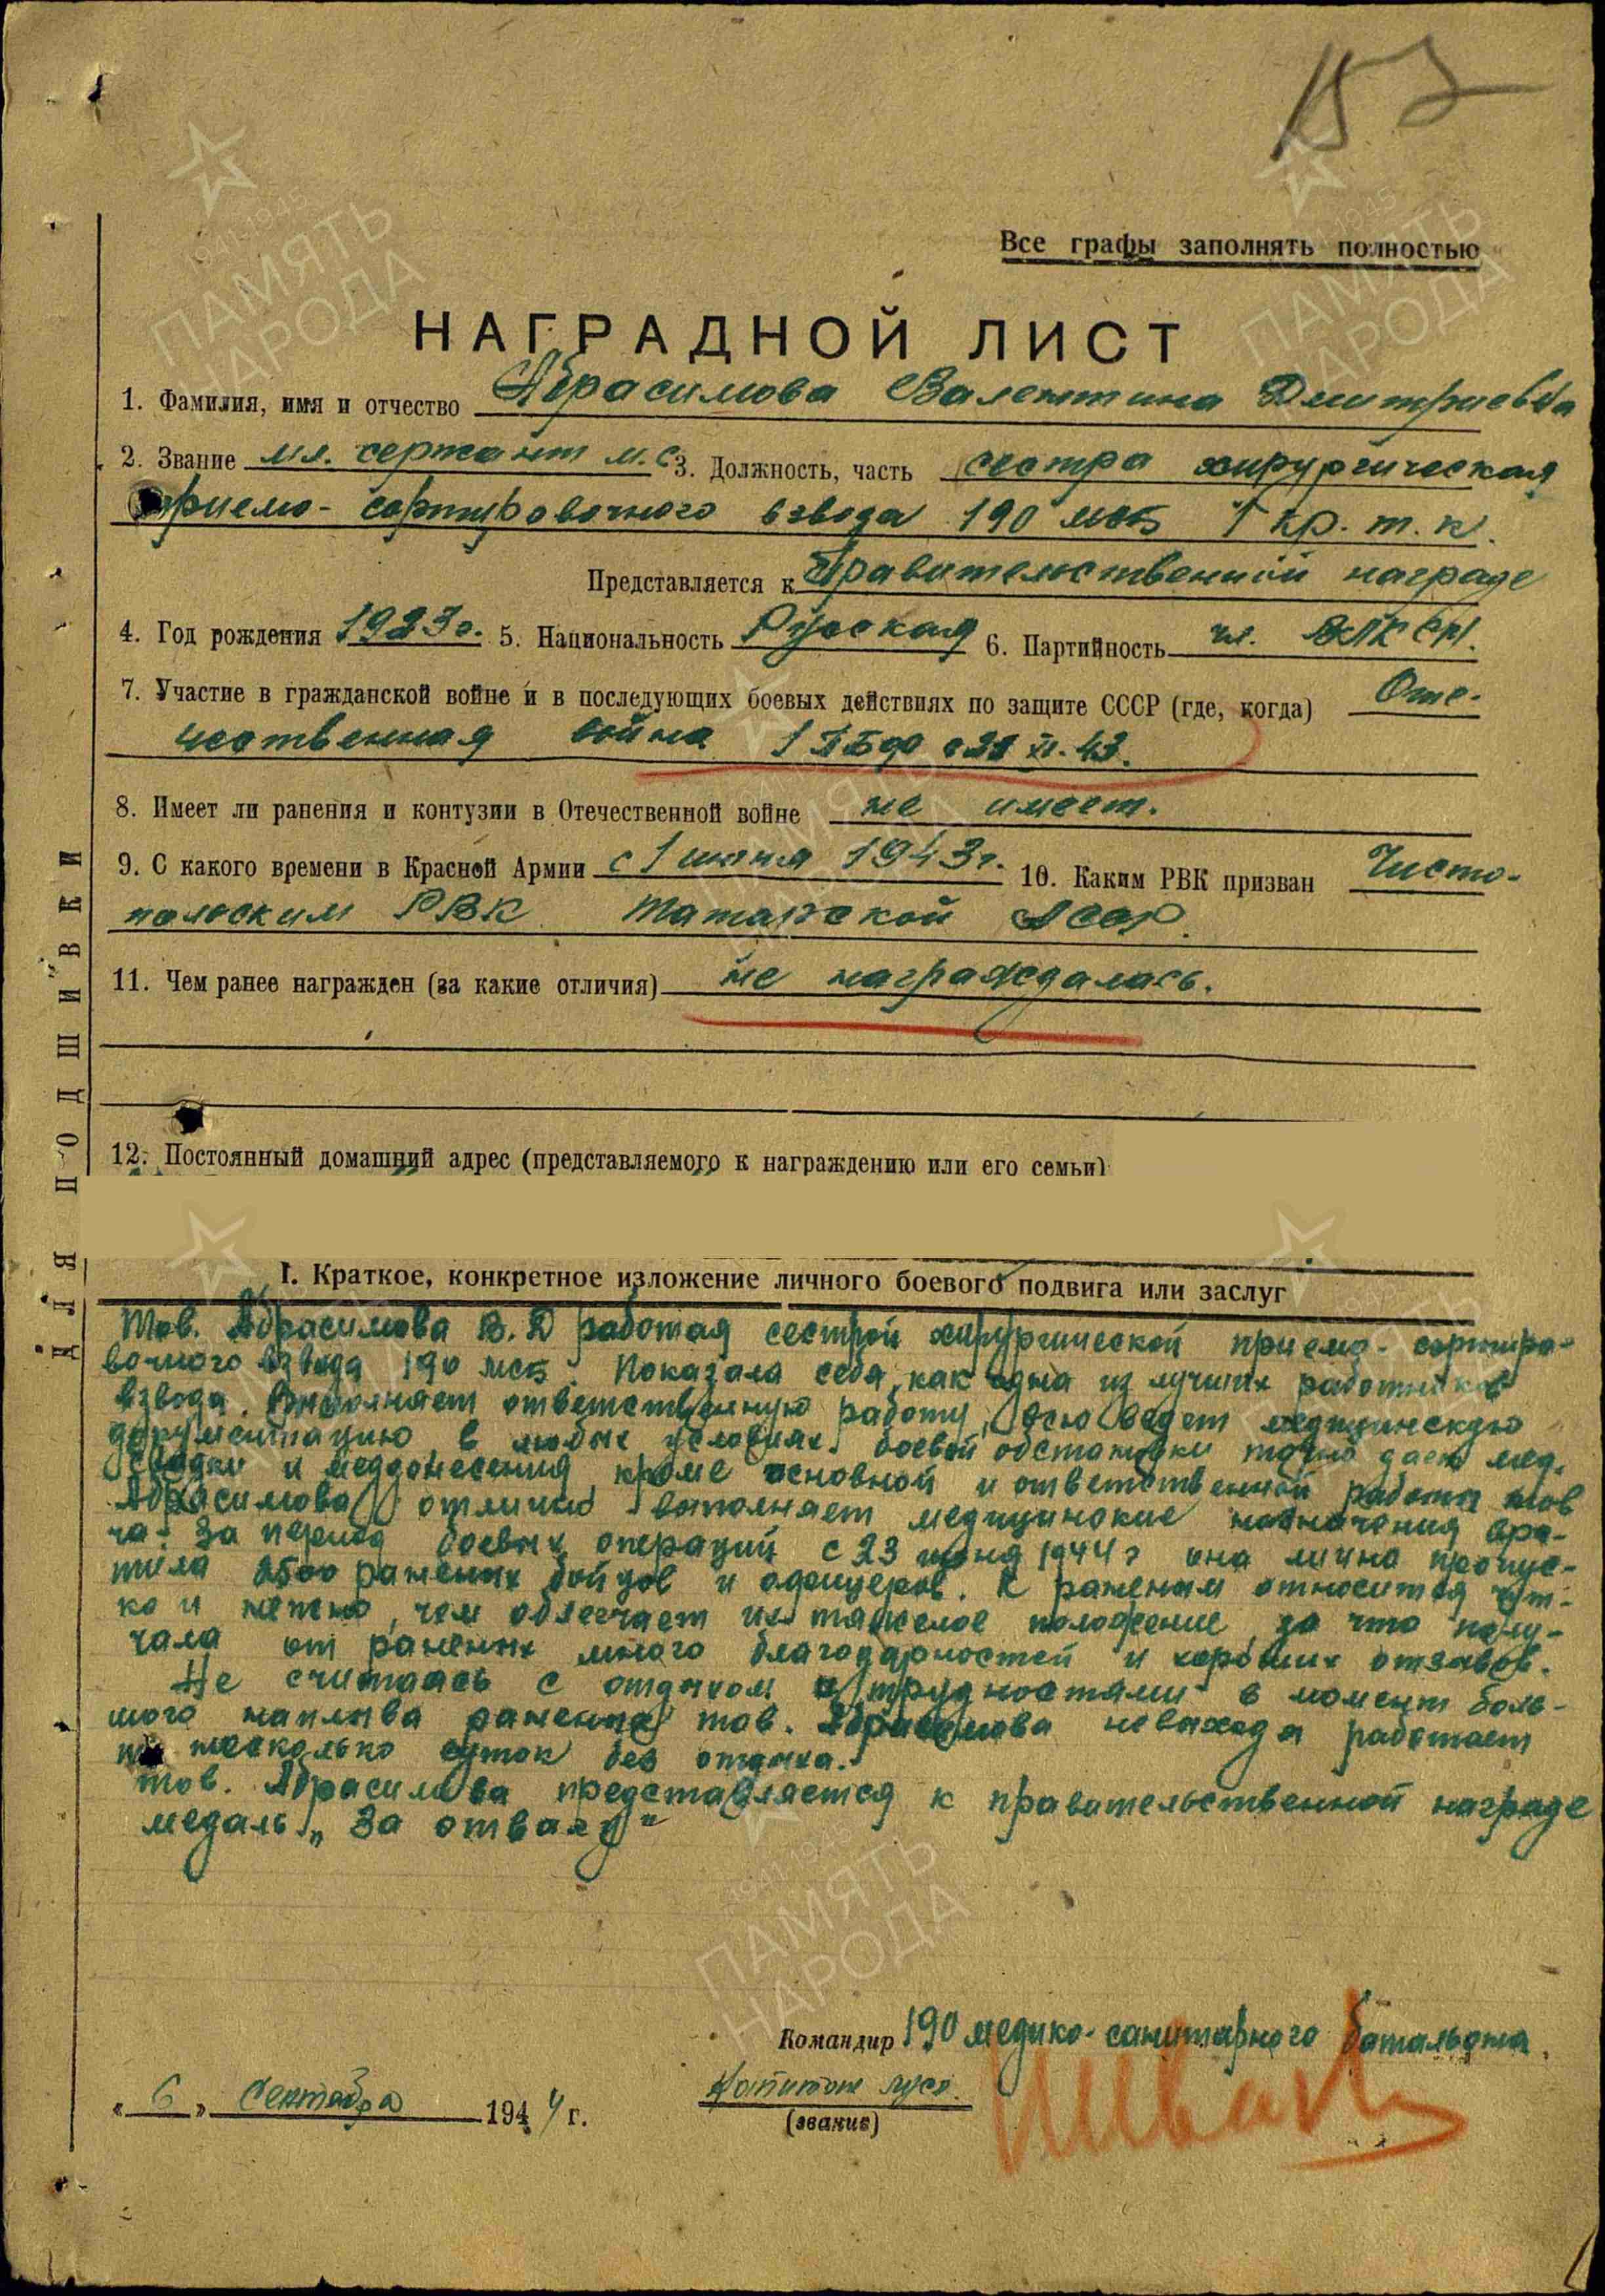 152
Все графы заполнять полностью
НАГРАДНОЙ ЛИСТ
1. Фамилия, имя и отчество Абрасимова Валентина Дмитриевна
2. Звание мл. сержант м.с. 3. Должность, часть сестра хирургическая
приемо-сортировочного взвода 190 мсб 1 кр. т. к.
Представляется к правительственной награде
4. Год рождения 1923 г. 5. Национальность Русская 6. Партийность чл. ВЛКСМ.
7. Участие в гражданской войне и в последующих боевых действиях по защите СССР (где, когда) Оте-
чественная война 1 ПБФ с XI. 43.
8. Имеет ли ранения и контузии в Отечественной войне не имеет.
9. С какого времени в Красной Армии с 1 1943 г. 10. Каким РВК призван Чисто-
польским РВК Татарской АССР.
11. Чем ранее награжден (за какие отличия) не награждалась.
12. Постоянный домашний адрес (представляемого к награждению или его семьи)
I. Краткое, конкретное изложение личного боевого подвига или заслуг
Тов. Абрасимова В. Д работая сестрой хирургической приемо-сортиро-
вочного взвода 190 мсб. Показала себя, как одна из лучших работников
взвода. Выполняет ответственную работу, всю ведет медицинскую
документацию, в любых условиях боевой обстановки точно дает мед.
сводки и меддонесения, кроме основной и ответственной работы тов
Абрасимова отлично выполняет медицинские назначения вра-
ча. За период боевых операций с 23 июня 1944 г она лично пропус-
тила 2500 раненых бойцов и офицеров. К раненым относится чут-
ко и нежно, чем облегчает их тяжелое положение, за что полу-
чала от раненых много благодарностей и хороших отзывов.
Не считаясь с отдыхом и трудностями в момент боль-
шого наплыва раненых тов. Абрасимова невыходя работает
по несколько суток без отдыха.
тов. Абрасимова представляется к правительственной награде
медаль „За отвагу"
Командир 190 медико-санитарного батальона
« 6 » Сентября 1944 г.
Капитан
(звание)
ДЛЯ ПОДШИВКИ
ПАМЯТЬ НАРОДА
1941-1945